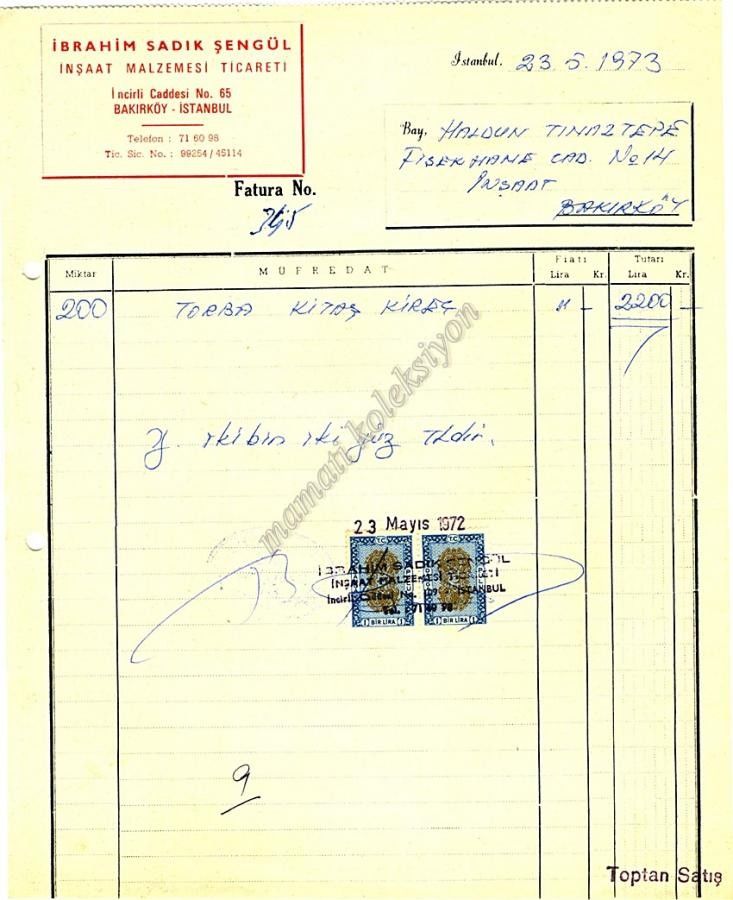 İBRAHİM SADIK ŞENGÜL
INŞAAT MALZEMESİ TİCARETI
İncirli Caddesi No. 65
BAKIRKÖY - İSTANBUL
Telefon : 71 60 98
Tic. Sic. No. : 99254/45114
İstanbul. 23.5.1973
Bay, HALDUN TINAZTEPE
FİŞEKHANE CAD. No 14
İNŞAAT
BAKIRKÖY
Fatura No.
Miktar MÜFREDAT Fiatı Tutarı
Lira Kr. Lira Kr.
200 TORBA KİTAŞ KİREÇ 11 - 2200 -
Y. ikibin iki yüz TLdir.
mamati koleksiyon
23 Mayıs 1972
TC TC
İBRAHİM SADIK ŞENGÜL
İNŞAAT MALZEMESİ TİCARETİ
İncirli Caddesi No. İSTANBUL
Tel. 71 60 98
1 BİR LİRA 1 1 BİR LİRA 1
9
Toptan Satış